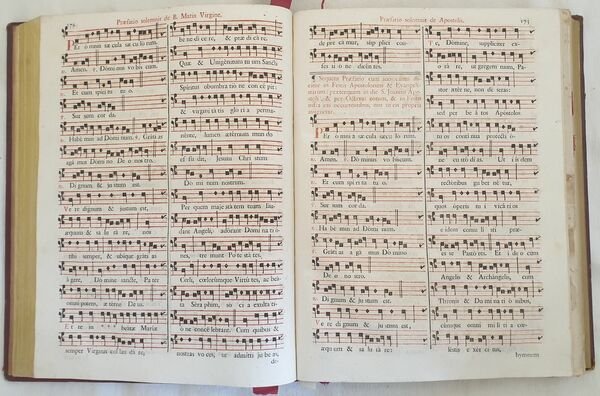 178 Præfatio solemnis de B. Maria Virgine.
Per omnia sæcula sæculorum.
Amen. Dóminus vobiscum.
Et cum spíritu tuo.
Sursum corda.
Habémus ad Dóminum. Grátias
agámus Dómino Deo nostro.
Dignum & justum est.
Vere dignum & justum est,
æquum & salutáre, nos
tibi semper, & ubíque grátias
ágere, Dómine sancte, Pater
omnípotens, ætérne Deus.
Et te in beátæ Maríæ
semper Vírginis collaudáre,
benedícere, & prædicáre.
Quæ & Unigénitum tuum Sancti
Spíritus obumbratióne concépit:
& virginitátis glória perma-
nénte, lumen ætérnum mundo
effúdit, Jesum Christum
Dóminum nostrum.
Per quem majestátem tuam lau-
dant Angeli, adórant Dominatió-
nes, tremunt Potestátes.
Cæli, cælorúmque Virtútes, ac beá-
ta Séraphim, sócia exsultati-
óne concélebrant. Cum quibus &
nostras voces, ut admítti júbeas,
de-
Præfatio solemnis de Apostolis. 175
deprecámur, súpplici con-
fessióne dicéntes.
Sequens Præfatio cum
in Festis Apostolorum & Evangelis-
tarum: præterquam in die S. Joannis Apost-
Per omnia sæcula sæculorum.
Amen. Dóminus vobíscum.
Et cum spíritu tuo.
Sursum corda.
Habémus ad Dóminum.
Grátias agámus Dómino
Deo nostro.
Dignum & justum est.
Vere dignum & justum est,
æquum & salutáre:
Te, Dómine, supplíciter ex-
oráre, ut gregem tuum, Pa-
stor ætérne, non déseras:
sed per beátos Apóstolos
tuos contínua protectió-
ne custódias. Ut iísdem
rectóribus gubernétur,
quos óperis tui vicários
eídem contulísti præ-
ésse Pastóres. Et ídeo cum
Angelis & Archángelis, cum
Thronis & Dominatiónibus,
cumque omni milítia cæ-
léstis exércitus,
hymnum